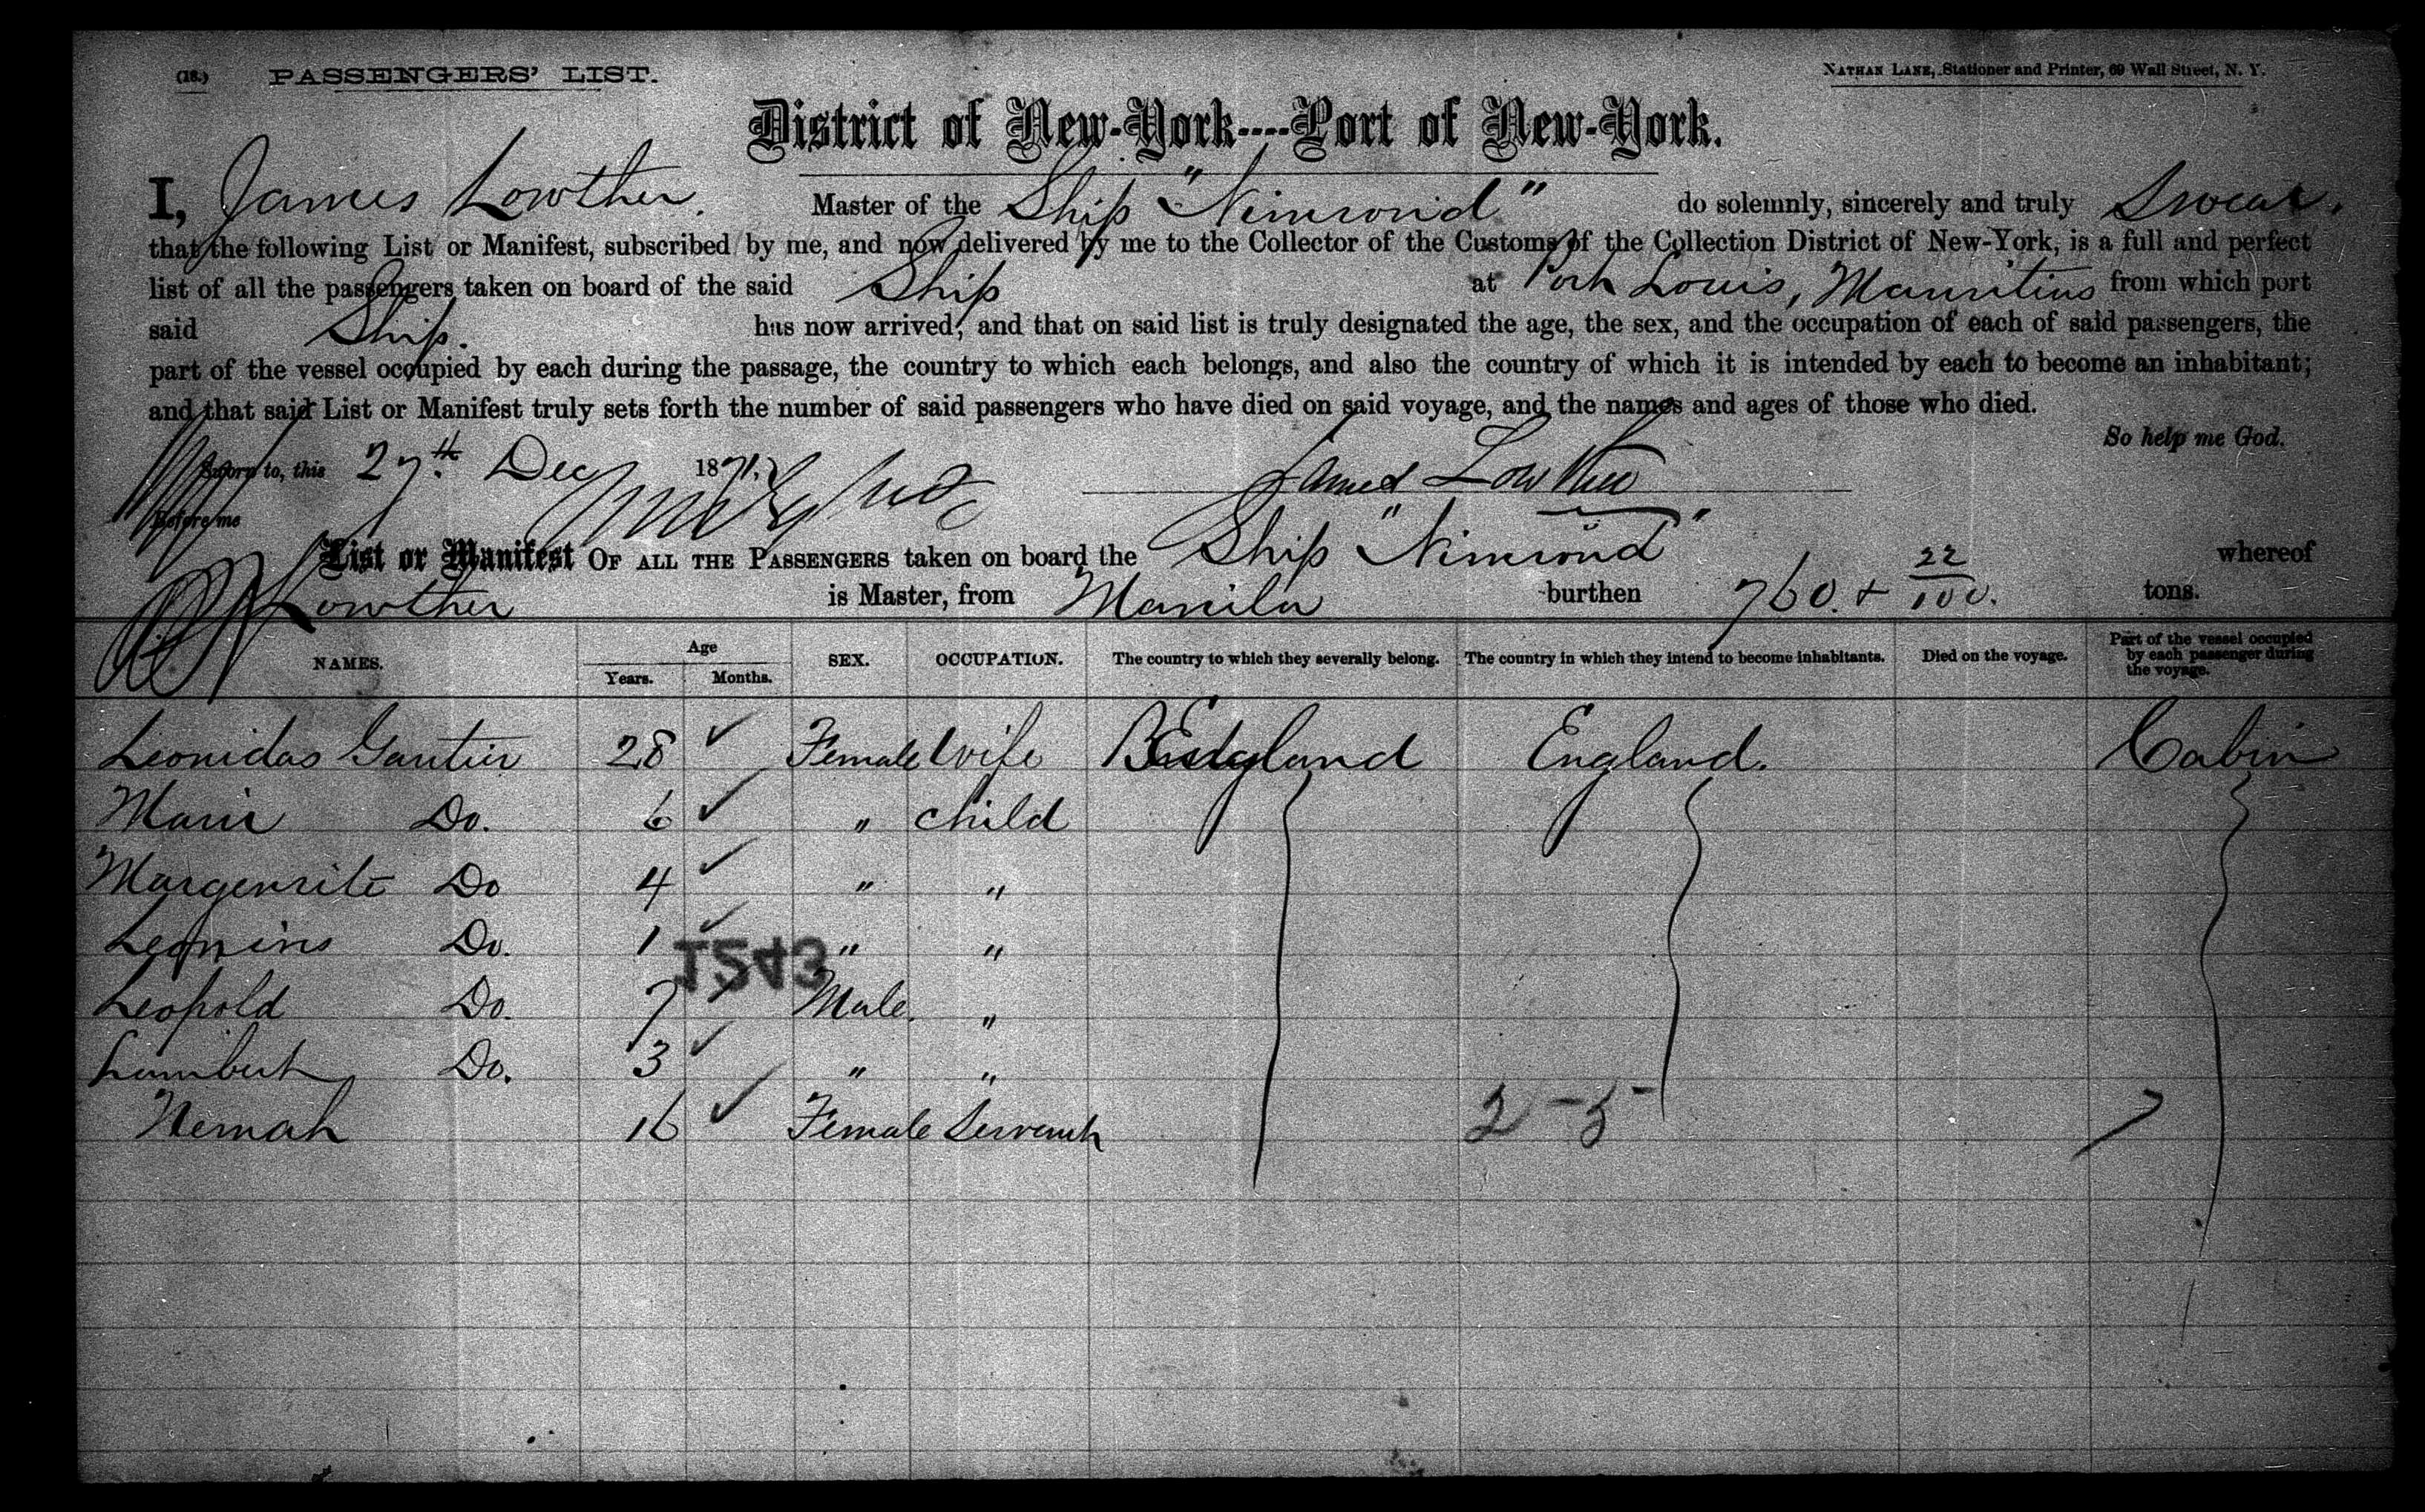 (18.) PASSENGERS' LIST. NATHAN LANE, Stationer and Printer, 69 Wall Street, N. Y.
District of New-York----Port of New-York.
I, James Lowther. Master of the Ship "Nimrond" do solemnly, sincerely and truly Swear.
that the following List or Manifest, subscribed by me, and now delivered by me to the Collector of the Customs of the Collection District of New-York, is a full and perfect
list of all the passengers taken on board of the said Ship at Port Louis, Mauritius from which port
said Ship. has now arrived, and that on said list is truly designated the age, the sex, and the occupation of each of said passengers, the
part of the vessel occupied by each during the passage, the country to which each belongs, and also the country of which it is intended by each to become an inhabitant;
and that said List or Manifest truly sets forth the number of said passengers who have died on said voyage, and the names and ages of those who died.
So help me God.
Sworn to, this 27th Dec 1871. James Lowther
Before me
List or Manifest OF ALL THE PASSENGERS taken on board the Ship "Nimrond" whereof
Lowther is Master, from Manila burthen 760. + 22/100. tons.
NAMES. Age Years. Months. SEX. OCCUPATION. The country to which they severally belong. The country in which they intend to become inhabitants. Died on the voyage. Part of the vessel occupied by each passenger during the voyage.
Leonidas Gautier 28 Female Wife England England. Cabin
Marie Do. 6 " child
Margeurite Do 4 " "
Do. 1 " "
1543
Leopold Do. 7 Male. "
Lambert Do. 3 " "
Nemah 16 Female Servant 2-5-